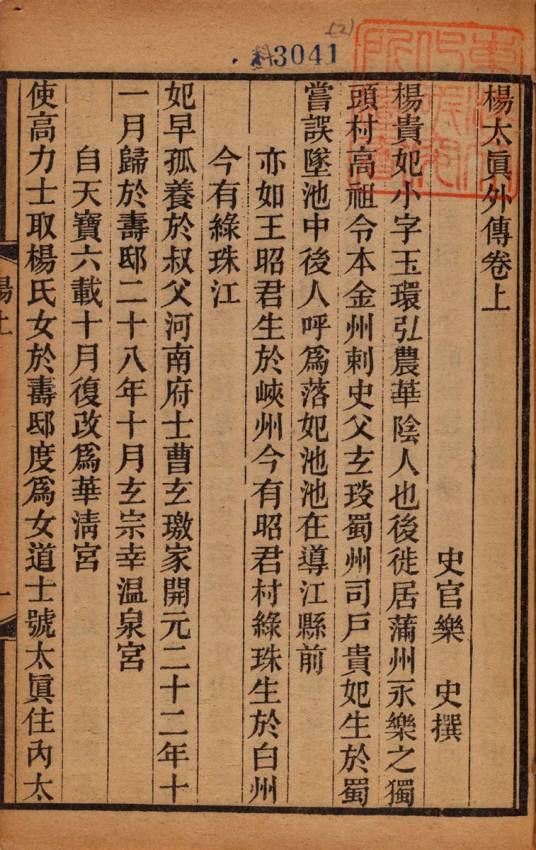 3041
楊太眞外傳卷上
史官樂　史撰
楊貴妃小字玉環弘農華陰人也後徙居蒲州永樂之獨
頭村高祖令本金州刺史父玄琰蜀州司戶貴妃生於蜀
嘗誤墜池中後人呼爲落妃池池在導江縣前
亦如王昭君生於峽州今有昭君村綠珠生於白州
今有綠珠江
妃早孤養於叔父河南府士曹玄璬家開元二十二年十
一月歸於壽邸二十八年十月玄宗幸温泉宮
自天寶六載十月復改爲華淸宮
使高力士取楊氏女於壽邸度爲女道士號太眞住內太
楊上
一